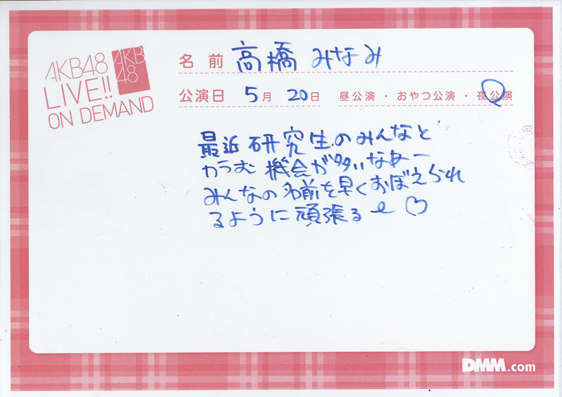 AKB48
LIVE!!
ON DEMAND
AKB
48
名前 高橋 みなみ
公演日 5月 20日 昼公演・おやつ公演・夜公演
最近 研究生のみんなと
からむ 機会が多いなぁー
みんなの名前を早くおぼえられ
るように頑張るぞ♡
DMM.com